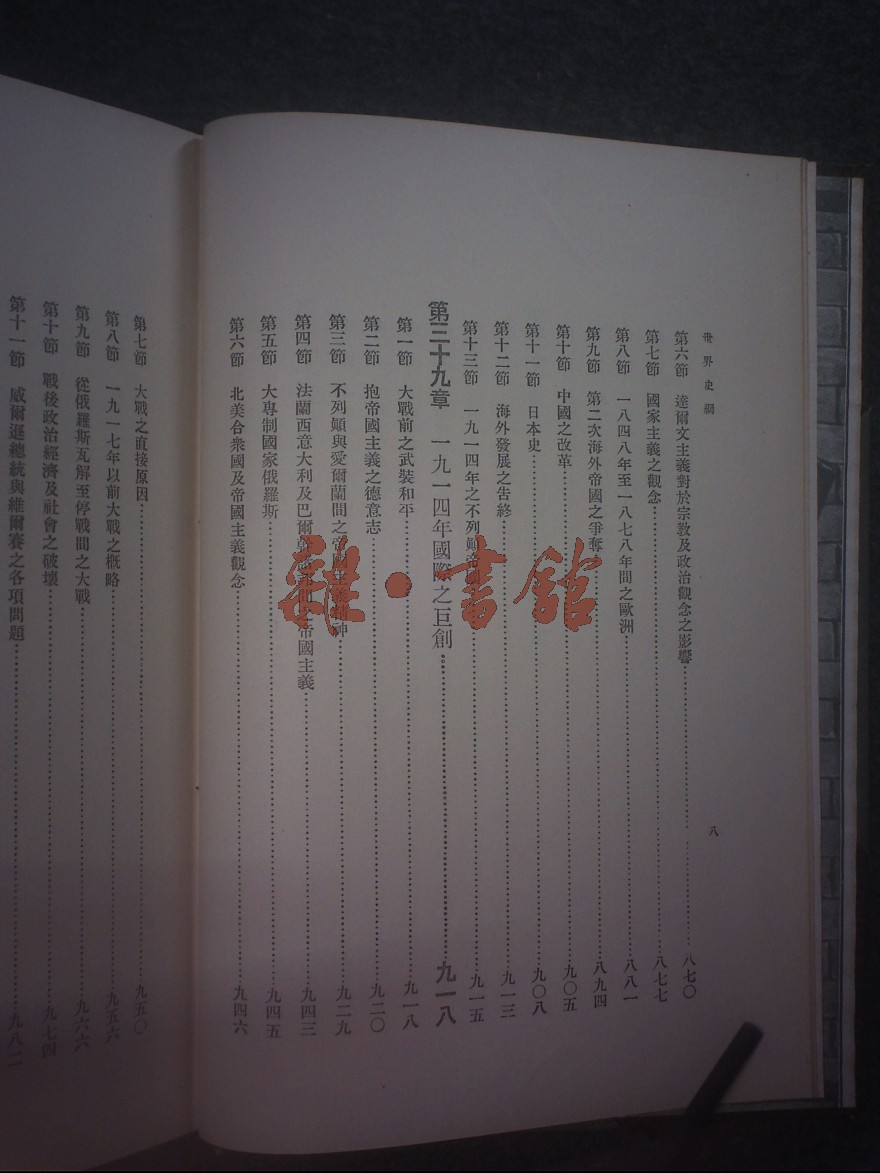 世界史綱
八
第六節 達爾文主義對於宗教及政治觀念之影響……八七〇
第七節 國家主義之觀念……八七七
第八節 一八四八年至一八七八年間之歐洲……八八一
第九節 第二次海外帝國之爭奪……八九四
第十節 中國之改革……九〇五
第十一節 日本史……九〇八
第十二節 海外發展之告終……九一三
第十三節 一九一四年之不列顛帝國……九一五
第三十九章 一九一四年國際之巨創……九一八
第一節 大戰前之武裝和平……九一八
第二節 抱帝國主義之德意志……九二〇
第三節 不列顛與愛爾蘭間之帝國主義精神……九二九
第四節 法蘭西意大利及巴爾幹間之帝國主義……九四三
第五節 大專制國家俄羅斯……九四五
第六節 北美合衆國及帝國主義觀念……九四六
第七節 大戰之直接原因……九五〇
第八節 一九一七年以前大戰之槪略……九五六
第九節 從俄羅斯瓦解至停戰間之大戰……九六六
第十節 戰後政治經濟及社會之破壞……九七四
第十一節 威爾遜總統與維爾賽之各項問題……九八
雜·書館